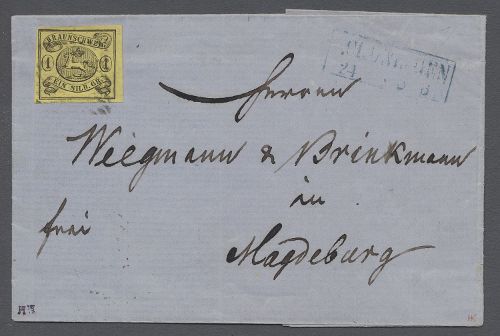 BRAUNSCHWEIG
1 1
EIN SILB. GR.
24
Herren
Wiegmann & Brinkmann
in
frei
Magdeburg